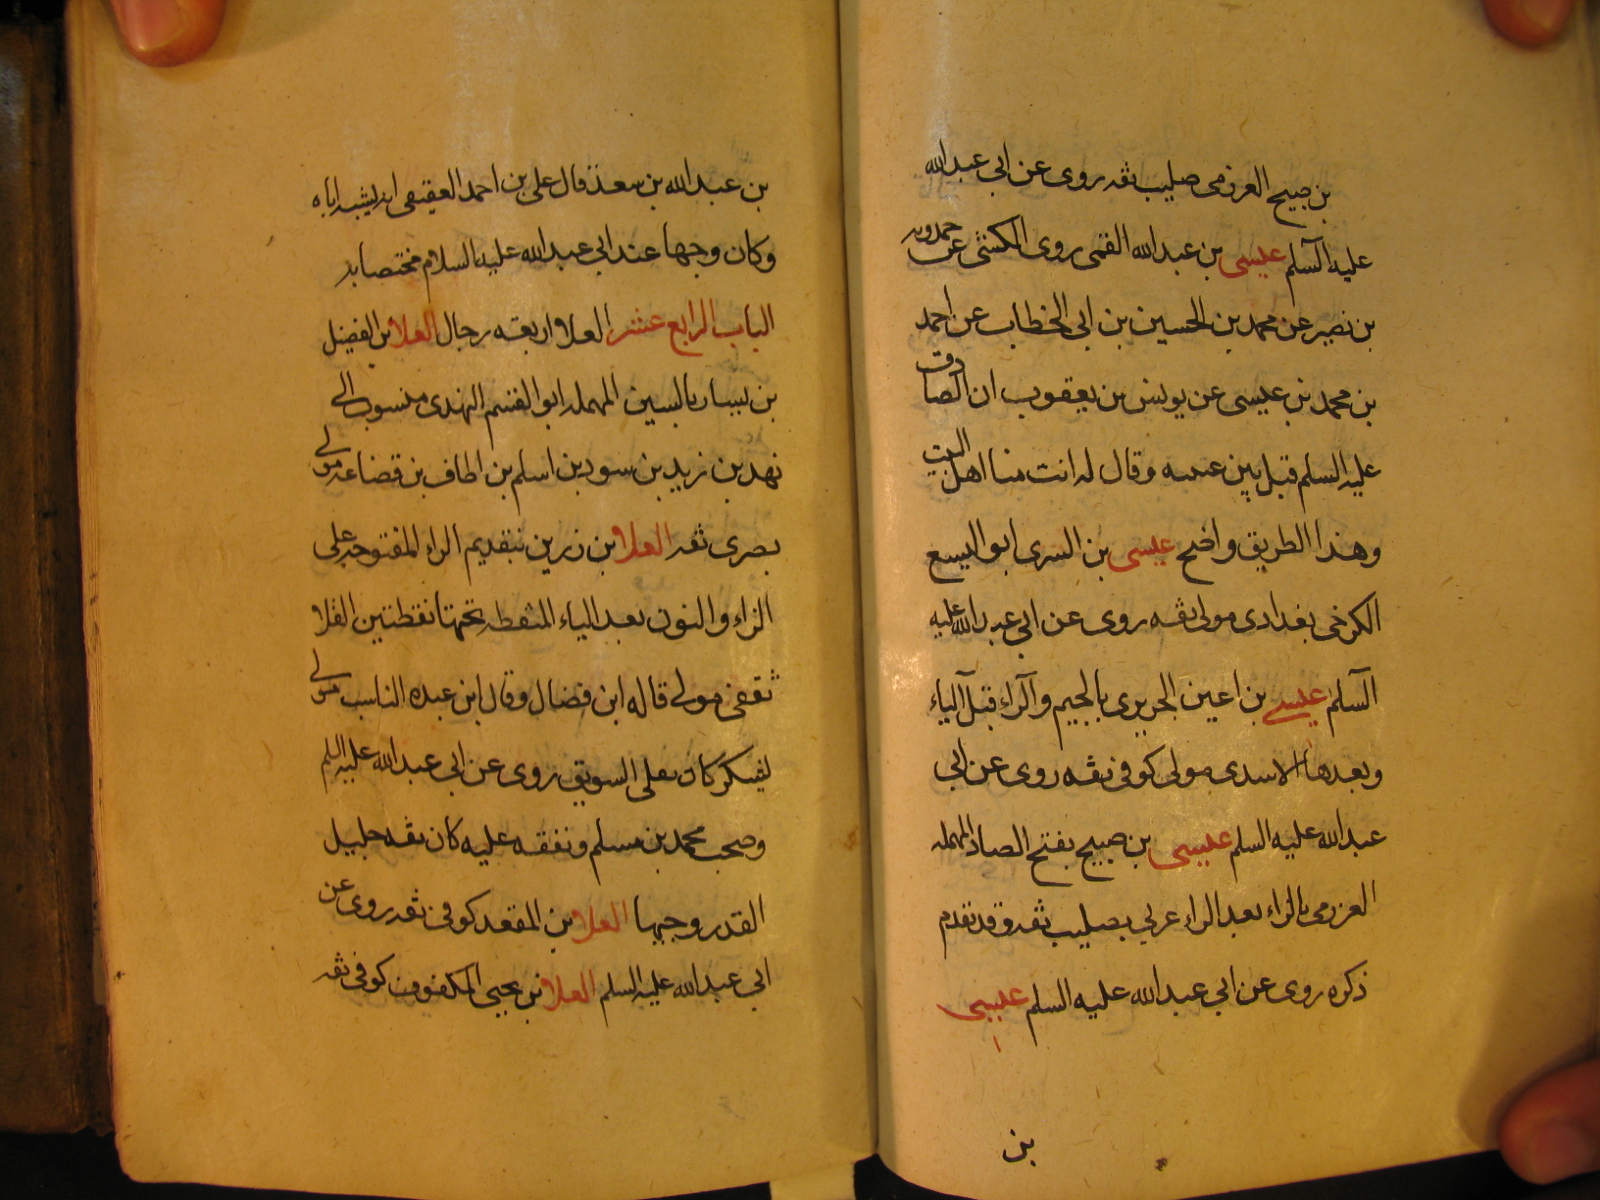 بن صبيح العرزمي صليب ثقه روى عن ابي عبدالله
عليه السلم عيسى بن عبدالله القمي روى الكشى عن حمدويه
بن نصير عن محمد بن الحسين بن ابي الخطاب عن احمد
بن محمد بن عيسى عن يونس بن يعقوب ان الصادق
عليه السلم قبل بين عينيه وقال له انت منا اهل البيت
وهذا الطريق واضح عيسى بن السرى ابو اليسع
الكرخى بغدادى مولى ثقه روى عن ابي عبدالله عليه
السلم عيسى بن اعين الجريرى بالجيم والراء قبل الياء
وبعدها الاسدى مولى كوفى ثقه روى عن ابي
عبدالله عليه السلم عيسى بن صبيح بفتح الصاد المهمله
العزرمى بالزاء بعد الراء عربي صليب ثقه وقد تقدم
ذكره روى عن ابي عبدالله عليه السلم عيسى
بن
بن عبدالله بن سعد قال على بن احمد العقيقى انه يشبه اباه
وكان وجها عند ابي عبدالله عليه السلام مختصا به
الباب الرابع عشر العلا اربعه رجال العلا بن الفضيل
بن يسار بالسين المهمله ابو القسم النهدى منسوب الى
نهد بن زيد بن سود بن اسلم بن الحاف بن قضاعه مولى
بصرى ثقه العلا بن رزين بتقديم الراء المفتوحه على
الزاء والنون بعد الياء المنقطه تحتها نقطتين القلا
ثقفى مولى قاله ابن فضال وقال ابن عبده الناسب مولى
يشكر كان يقلى السويق روى عن ابي عبدالله عليه السلم
وصحب محمد بن مسلم وتفقه عليه كان ثقه جليل
القدر وجيها العلا بن المقعد كوفى ثقه روى عن
ابي عبدالله عليه السلم العلا بن يحيى المكفوف كوفى ثقه